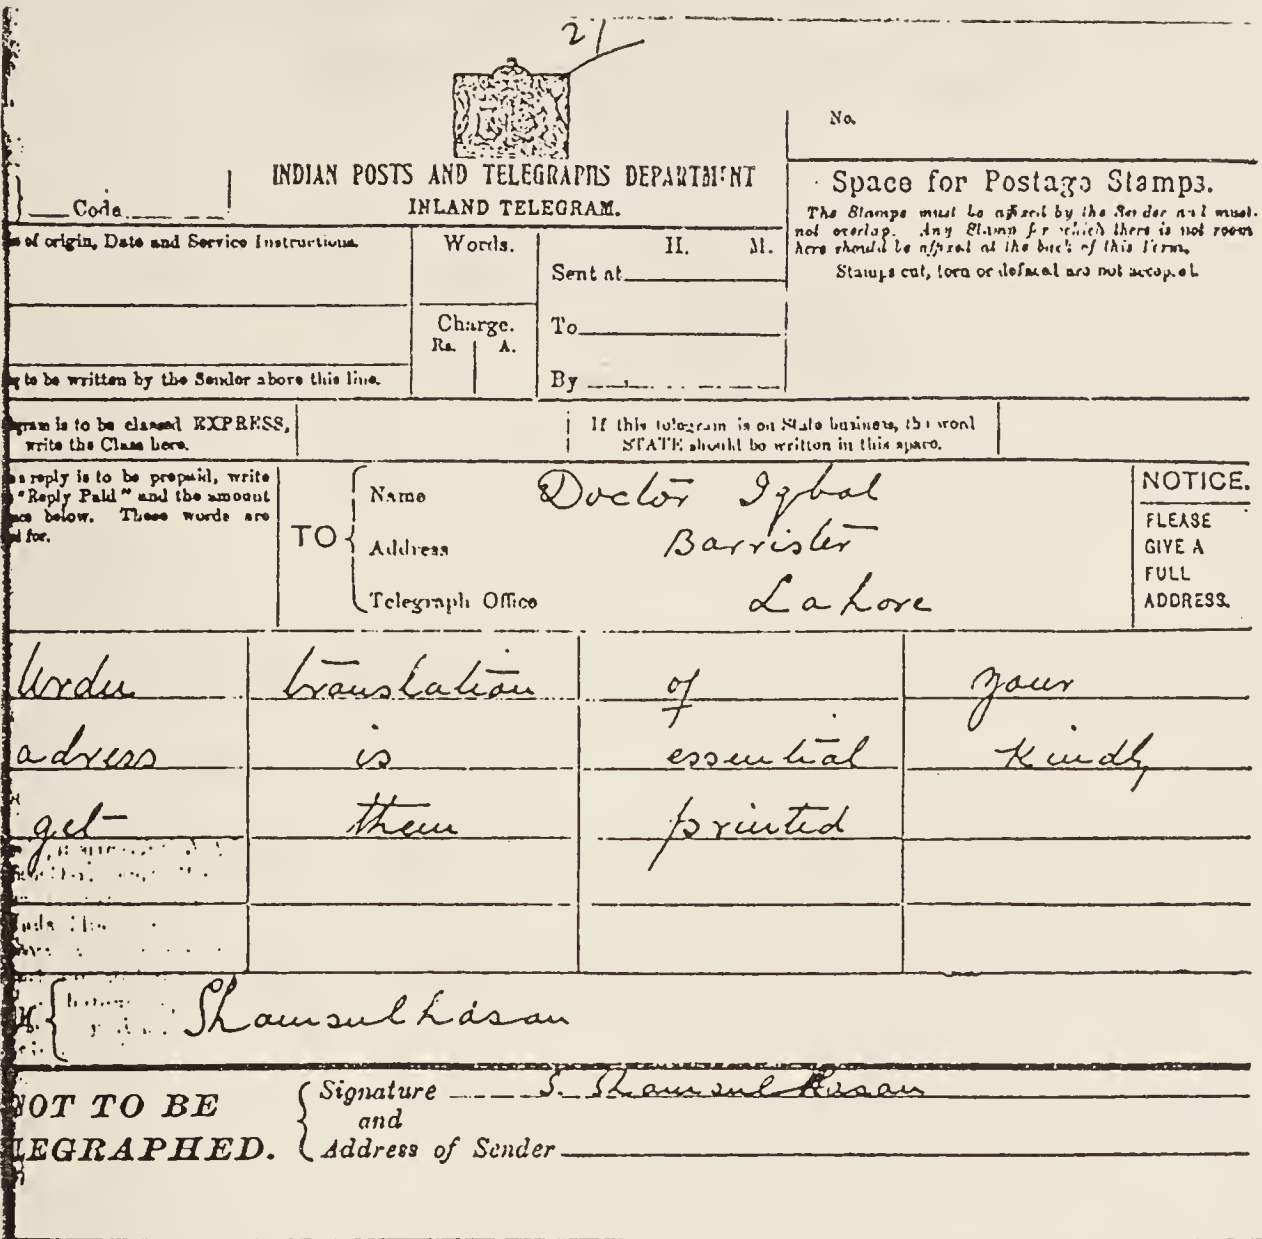 21
No.
INDIAN POSTS AND TELEGRAPHS DEPARTMENT
INLAND TELEGRAM.
Code
Space for Postage Stamps.
The Stamps must be affixed by the Sender and must
not overlap. Any Stamp for which there is not room
here should be affixed at the back of this Form.
Stamps cut, torn or defaced are not accepted.
of origin, Date and Service Instructions.
Words.
H. M.
Sent at
Charge.
Rs. A.
To
By
to be written by the Sender above this line.
gram is to be classed EXPRESS,
write the Class here.
If this telegram is on State business, the word
STATE should be written in this space.
a reply is to be prepaid, write
"Reply Paid" and the amount
below. These words are
for.
TO
Name Doctor Iqbal
Address Barrister
Telegraph Office Lahore
NOTICE.
PLEASE
GIVE A
FULL
ADDRESS.
Urdu translation of your
adress is essential Kindly
get them printed
Shamsulhasan
NOT TO BE
LEGRAPHED.
Signature S. Shamsul Hasan
and
Address of Sender